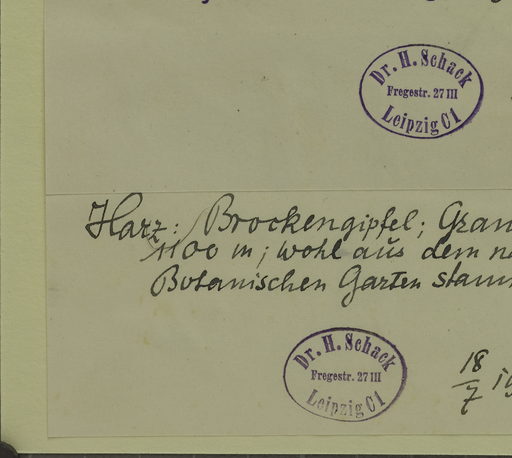 Dr. H. Schack
Fregestr. 27 III
Leipzig C1
Harz: Brockengipfel; Gran
1100 m; wohl aus dem n
Botanischen Garten stam
Dr. H. Schack
Fregestr. 27 III
Leipzig C1
18/7 19